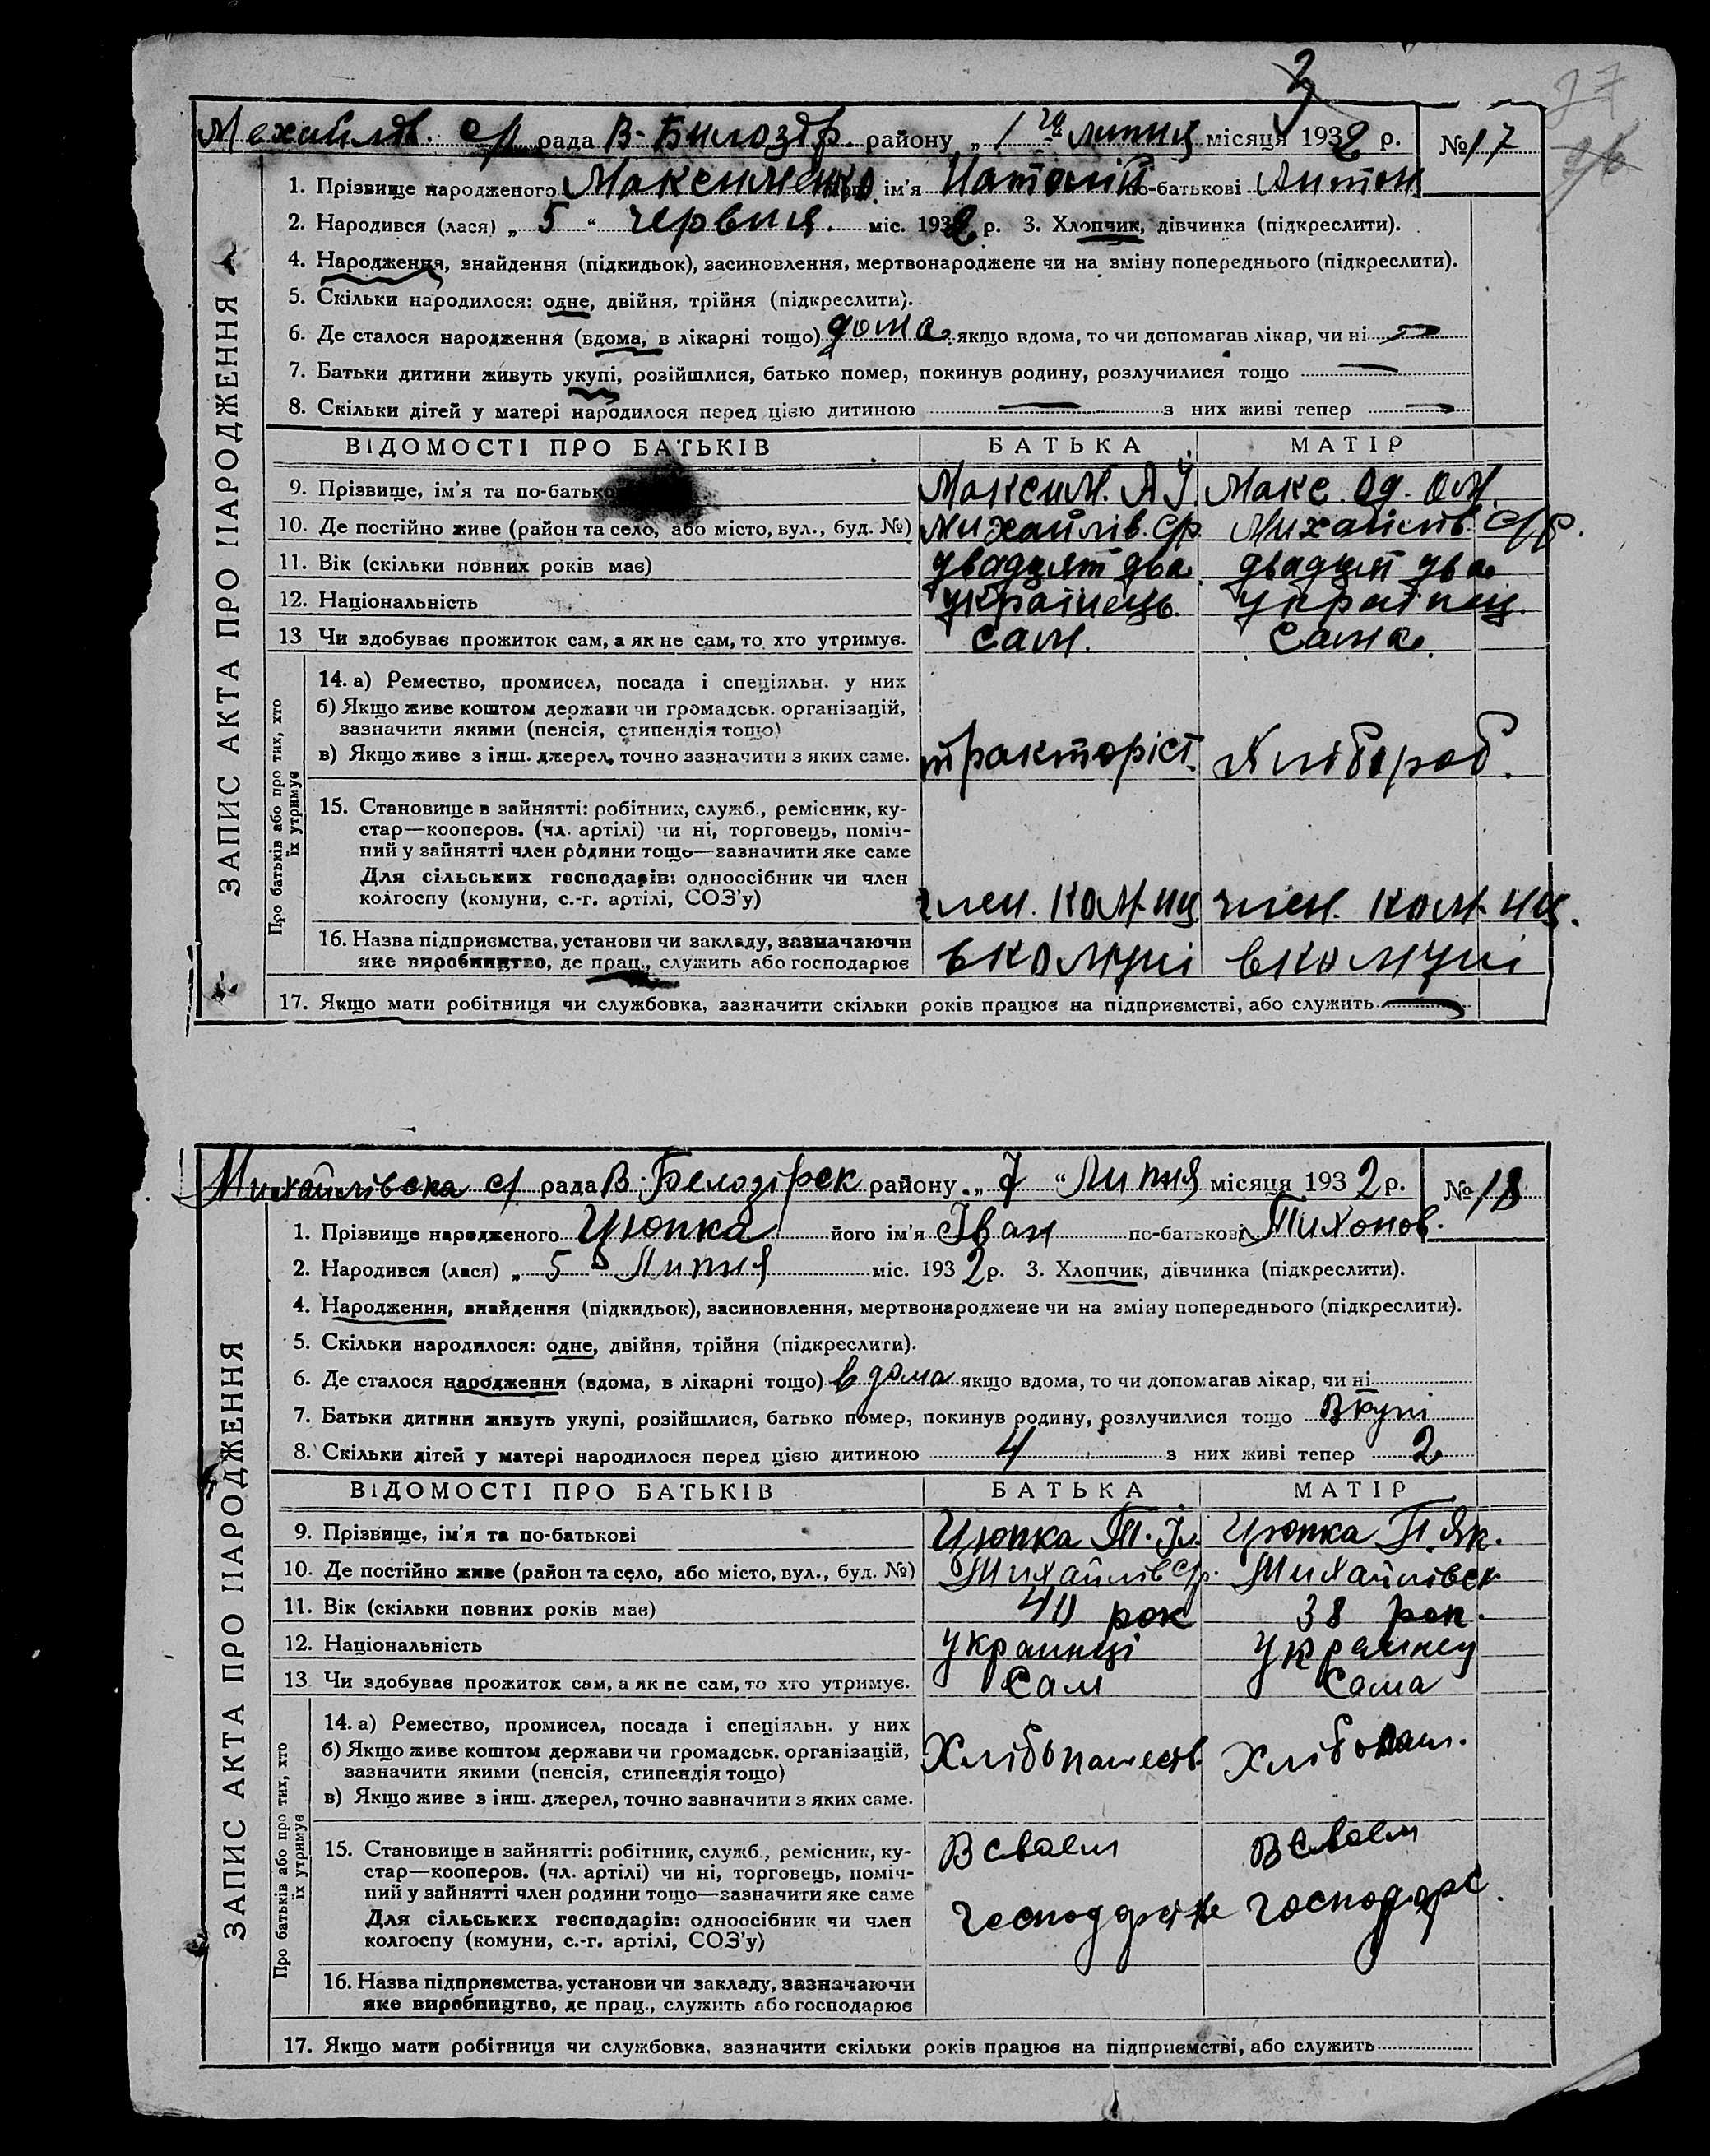 3
37
Михайлів. с/ рада В-Билозір. району „ 1 го “ липня місяця 1932 р. №17
1. Прізвище народженого Максименко його ім'я Наталій по-батькові Антон
2. Народився (лася) „ 5 “ червня. міс. 1932 р. 3. Хлопчик, дівчинка (підкреслити).
4. Народження, знайдення (підкидьок), засиновлення, мертвонароджене чи на зміну попереднього (підкреслити).
5. Скільки народилося: одне, двійня, трійня (підкреслити).
6. Де сталося народження (вдома, в лікарні тощо) дома якщо вдома, то чи допомагав лікар, чи ні —
7. Батьки дитини живуть укупі, розійшлися, батько помер, покинув родину, розлучилися тощо —
8. Скільки дітей у матері народилося перед цією дитиною — з них живі тепер —
ЗАПИС АКТА ПРО НАРОДЖЕННЯ
ВІДОМОСТІ ПРО БАТЬКІВ БАТЬКА МАТІР
9. Прізвище, ім'я та по-батько Максим. А І Макс. Од. ОМ.
10. Де постійно живе (район та село, або місто, вул., буд. №) Михайлів. с/р. Михайлів с/р.
11. Вік (скільки повних років має) двадцят два двадцят два
12. Національність українець. українец.
13 Чи здобуває прожиток сам, а як не сам, то хто утримує. сам. сама.
Про батьків або про тих, хто їх утримує
14. а) Ремество, промисел, посада і спеціяльн. у них
б) Якщо живе коштом держави чи громадськ. організацій,
зазначити якими (пенсія, стипендія тощо)
в) Якщо живе з інш. джерел, точно зазначити з яких саме. тракторіст. Хлібороб.
15. Становище в зайнятті: робітник, служб., ремісник, ку-
стар—кооперов. (чл. артілі) чи ні, торговець, поміч-
ний у зайнятті член родини тощо—зазначити яке саме
Для сільських господарів: одноосібник чи член
колгоспу (комуни, с.-г. артілі, СОЗ'у) член. ком-ни член. ком-ни.
16. Назва підприємства, установи чи закладу, зазначаючи
яке виробництво, де прац., служить або господарює вкомуні вкомуні
17. Якщо мати робітниця чи службовка, зазначити скільки років працює на підприємстві, або служить —
Михайлівска с/ рада В. Белозірск району „ 7 “ Липня місяця 1932 р. №18
1. Прізвище народженого Цюпка його ім'я Іван по-батькові Тихонов.
2. Народився (лася) „ 5 “ Липня міс. 1932 р. 3. Хлопчик, дівчинка (підкреслити).
4. Народження, знайдення (підкидьок), засиновлення, мертвонароджене чи на зміну попереднього (підкреслити).
5. Скільки народилося: одне, двійня, трійня (підкреслити).
6. Де сталося народження (вдома, в лікарні тощо) в дома якщо вдома, то чи допомагав лікар, чи ні
7. Батьки дитини живуть укупі, розійшлися, батько помер, покинув родину, розлучилися тощо Вкупі
8. Скільки дітей у матері народилося перед цією дитиною 4 з них живі тепер 2
ЗАПИС АКТА ПРО НАРОДЖЕННЯ
ВІДОМОСТІ ПРО БАТЬКІВ БАТЬКА МАТІР
9. Прізвище, ім'я та по-батькові Цюпка Т. Іл. Цюпка П. Як.
10. Де постійно живе (район та село, або місто, вул., буд. №) Михайлів с/р. Михайлівск
11. Вік (скільки повних років має) 40 рок 38 рок.
12. Національність украинці украинец
13. Чи здобуває прожиток сам, а як не сам, то хто утримує. Сам Сама
Про батьків або про тих, хто їх утримує
14. а) Ремество, промисел, посада і спеціяльн. у них
б) Якщо живе коштом держави чи громадськ. організацій, Хлібопашеств. Хлібопаш.
зазначити якими (пенсія, стипендія тощо)
в) Якщо живе з інш. джерел, точно зазначити з яких саме.
15. Становище в зайнятті: робітник, служб., ремісник, ку- В своем В своем
стар—кооперов. (чл. артілі) чи ні, торговець, поміч-
ний у зайнятті член родини тощо—зазначити яке саме
Для сільських господарів: одноосібник чи член господарс
колгоспу (комуни, с.-г. артілі, СОЗ'у)
16. Назва підприємства, установи чи закладу, зазначаючи
яке виробництво, де прац., служить або господарює
17. Якщо мати робітниця чи службовка, зазначити скільки років працює на підприємстві, або служить